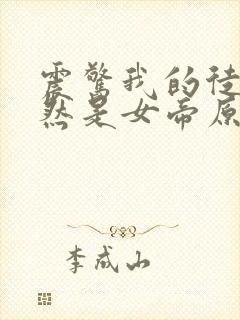 震惊我的徒
然是女帝原
李成山